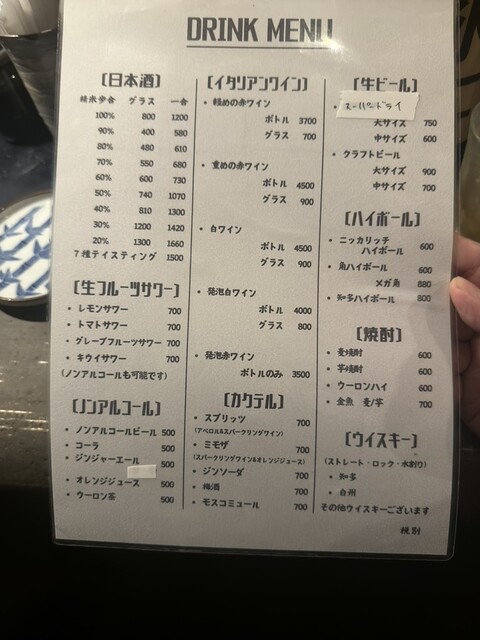 DRINK MENU
〔日本酒〕
精米歩合 グラス 一合
100% 800 1200
90% 400 580
80% 480 610
70% 550 680
60% 600 730
50% 740 1070
40% 810 1300
30% 1200 1420
20% 1300 1660
7種テイスティング 1500
〔生フルーツサワー〕
・レモンサワー 700
・トマトサワー 700
・グレープフルーツサワー 700
・キウイサワー 700
(ノンアルコールも可能です)
〔ノンアルコール〕
・ノンアルコールビール 500
・コーラ 500
・ジンジャーエール 500
・オレンジジュース 500
・ウーロン茶 500
〔イタリアンワイン〕
・軽めの赤ワイン
ボトル 3700
グラス 700
・重めの赤ワイン
ボトル 4500
グラス 900
・白ワイン
ボトル 4500
グラス 900
・発泡白ワイン
ボトル 4000
グラス 800
・発泡赤ワイン
ボトルのみ 3500
〔カクテル〕
・スプリッツ 700
(アペロル&スパークリングワイン)
・ミモザ 700
(スパークリングワイン&オレンジジュース)
・ジンソーダ 700
・梅酒 700
・モスコミュール 700
〔生ビール〕
・スーパードライ
大サイズ 750
中サイズ 600
・クラフトビール
大サイズ 900
中サイズ 700
〔ハイボール〕
・ニッカリッチ
ハイボール 600
・角ハイボール 600
メガ角 880
・知多ハイボール 800
〔焼酎〕
・麦焼酎 600
・芋焼酎 600
・ウーロンハイ 600
・金魚 麦/芋 700
〔ウイスキー〕
(ストレート・ロック・水割り)
・知多
・白州
その他ウイスキーございます
税別